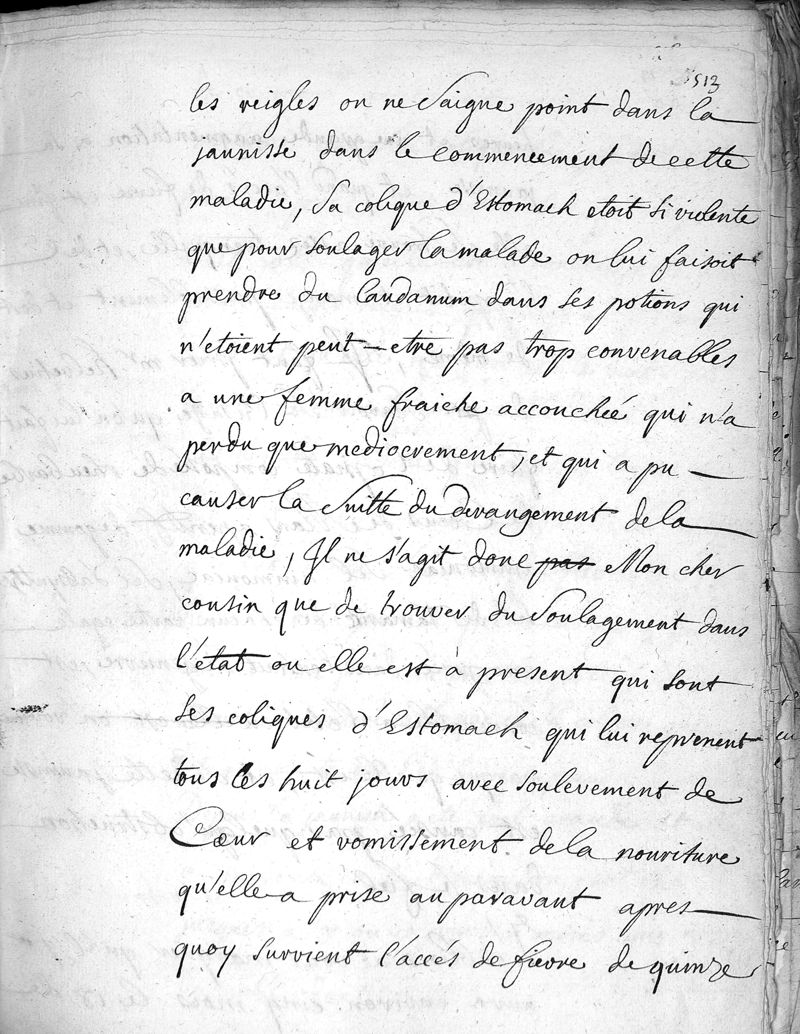 513
les reigles on ne saigne point dans la
jaunisse dans le commencement de cette
maladie, sa colique d'Estomach etoit si violente
que pour soulager la malade on lui faisoit
prendre du laudanum dans ses potions qui
n'etoient peut-etre pas trop convenables
a une femme fraiche accouchée qui n'a
perdu que mediocrement, et qui a pu
causer la suitte du derangement de la
maladie, Il ne s'agit donc pas Mon cher
cousin que de trouver du soulagement dans
l'etat ou elle est à present qui sont
ses coliques d'Estomach qui lui reprenent
tous les huit jours avec soulevement de
Cœur et vomissement de la nouriture
qu'elle a prise au paravant apres
quoy survient l'accés de fievre de quinze